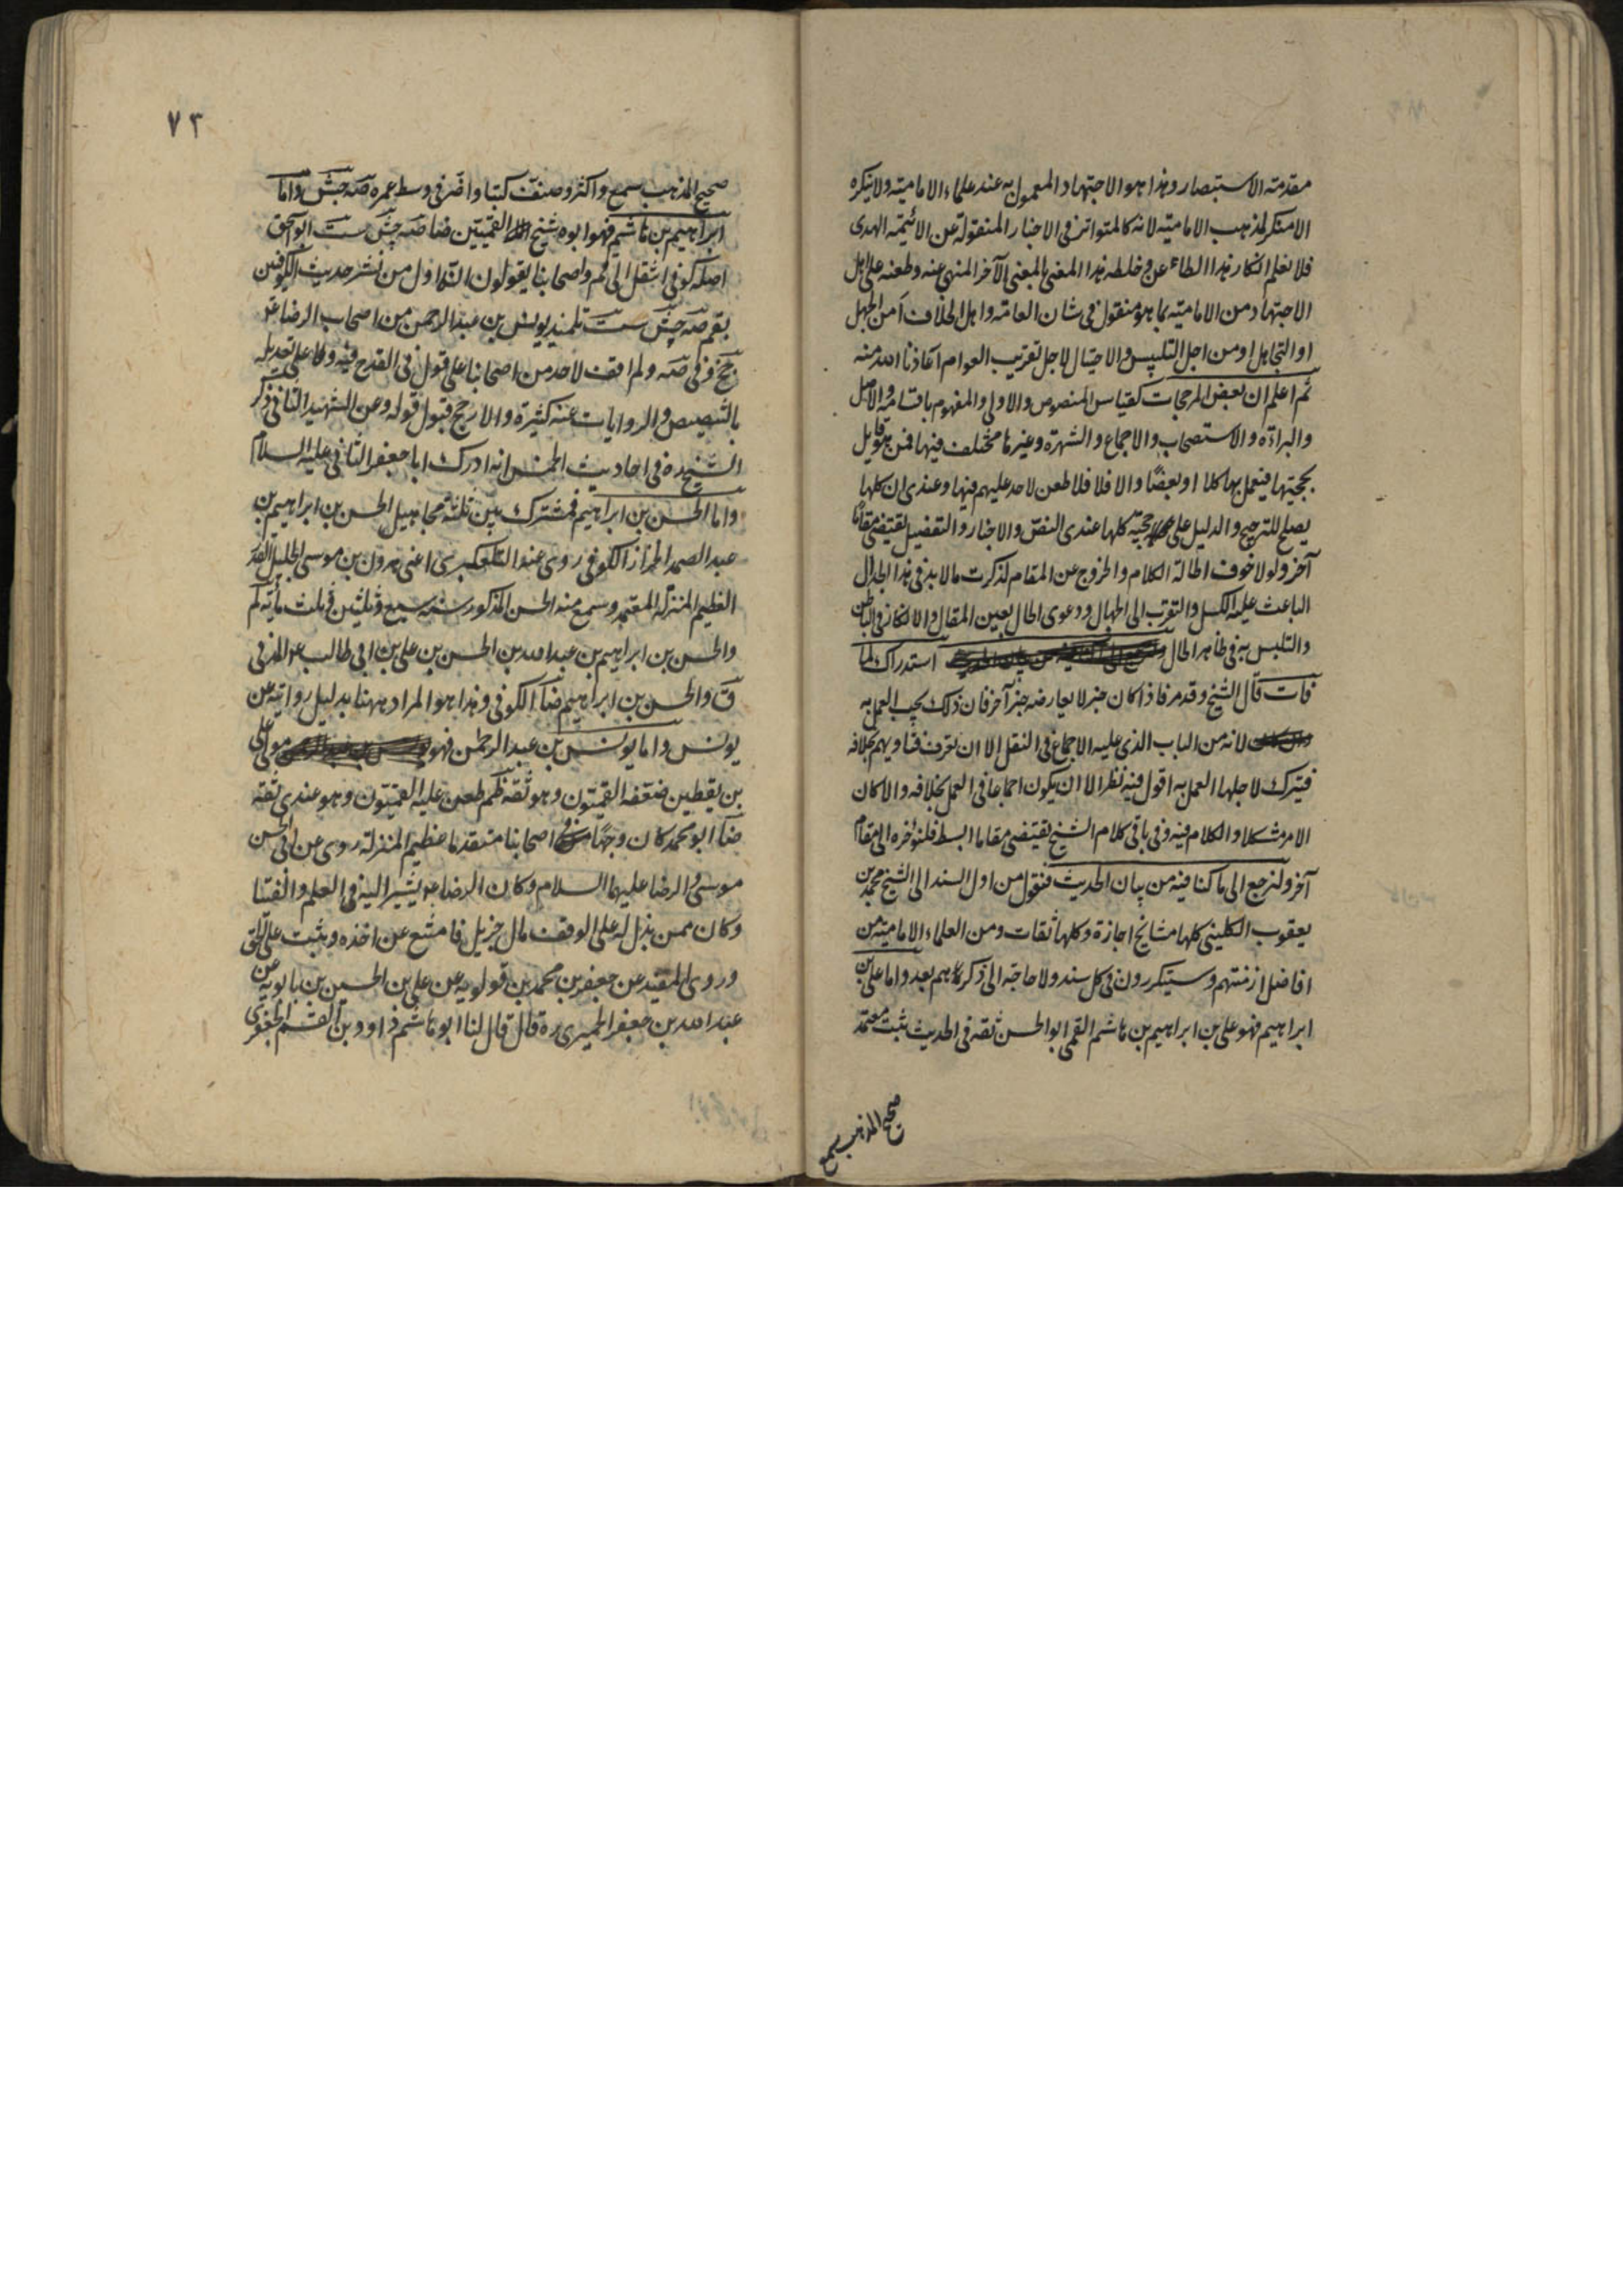 مقدمته الاستبصار وهذا هو الاجتهاد المعمول به عند علماء الامامية ولا ينكره
الا منكر لمذهب الامامية لانه كالمتواتر في الاخبار المنقولة عن الائمة الهدى
فلا نعلم انكار هذا الطاعن خلطه هذا المعنى بالمعنى الآخر المنهى عنه وطعنه على اهل
الاجتهاد من الامامية بما هو منقول في شان العامة واهل الخلاف أمن الجهل
او التجاهل او من اجل التلبيس والاحتيال لاجل تقريب العوام اعاذنا الله منه
ثم اعلم ان بعض المرجحات كقياس المنصوص والاولى والمفهوم باقسامه والاصل
والبراءة والاستصحاب والاجماع والشهرة وغيرها مختلف فيها فمن يقول
بحجيتها فيعمل بها كلا او بعضًا والا فلا فلا طعن لاحد عليهم فيها وعندى ان كلها
يصلح للترجيح والدليل على حجيته كلها عندى النص والاخبار والتفصيل يقتضى مقامًا
آخر ولولا خوف اطالة الكلام والخروج عن المقام لذكرت ما لا بد في هذا الجدال
الباعث عليه الكسل والتقرب الى الجهال ودعوى الحال بعين المقال والانكار في الباطن
والتلبس به في ظاهر الحال استدراك لما
فات قال الشيخ وقد مر فاذا كان خبر لا يعارضه خبر آخر فان ذلك يجب العمل به
لانه من الباب الذى عليه الاجماع في النقل الا ان تعرف فتاويهم بخلافه
فيترك لاجلها العمل به اقول فيه نظر الا ان يكون اجماعا في العمل بخلافه والا كان
الامر مشكلا والكلام فيه وفي باقي كلام الشيخ يقتضى مقاما ابسط فلنؤخره الى مقام
آخر ولنرجع الى ما كنا فيه من بيان الحديث فنقول من اول السند الى الشيخ محمد بن
يعقوب الكليني كلها مشايخ اجازة وكلها ثقات ومن العلماء الامامية من
افاضل ازمنتهم وسيتكررون في كل سند ولا حاجة الى ذكرهم بعد واما على بن
ابراهيم فهو على بن ابراهيم بن هاشم القمى ابو الحسن ثقة في الحديث ثبت معتمد
صحيح المذهب سمع
٧٣
صحيح المذهب سمع واكثر وصنف كتبا واضر في وسط عمره صه جش واما
ابراهيم بن هاشم فهو ابوه شيخ القميين ضا صه جش ست ابو اسحق
اصله كوفي انتقل الى قم واصحابنا يقولون انه اول من نشر حديث الكوفيين
بقم صه جش ست تلميذ يونس بن عبد الرحمن من اصحاب الرضا ع
جخ وفي صه ولم اقف لاحد من اصحابنا على قول في القدح فيه ولا على تعديله
بالتنصيص والروايات عنه كثيرة والارجح قبول قوله وعن الشهيد الثاني ذكر
الشيخ ره في احاديث الخمس انه ادرك ابا جعفر الثاني عليه السلام
واما الحسن بن ابراهيم فمشترك بين ثلثة مجاهيل الحسن بن ابراهيم بن
عبد الصمد الخزاز الكوفي روى عنه التلعكبرى اعنى هرون بن موسى الجليل القدر
العظيم المنزلة المعتمد وسمع منه الحسن المذكور سنة سبع وثلثين وثلث مأية لم
والحسن بن ابراهيم بن عبد الله بن الحسن بن على بن ابى طالب ع المدني
ق والحسن بن ابراهيم ضا الكوفي وهذا هو المراد ههنا بدليل روايته عن
يونس واما يونس بن عبد الرحمن فهو مولى على
بن يقطين ضعفه القميون وهو ثقة ظم طعن عليه القميون وهو عندى ثقة
ضا ابو محمد كان وجهًا في اصحابنا متقدما عظيم المنزلة روى عن ابى الحسن
موسى والرضا عليهما السلام وكان الرضا ع يشير اليه في العلم والفتيا
وكان ممن بذل له على الوقف مال جزيل فامتنع عن اخذه وثبت على الحق
وروى المفيد عن جعفر بن محمد بن قولويه عن على بن الحسين بن بابويه عن
عبد الله بن جعفر الحميرى ره قال قال لنا ابو هاشم داود بن القسم الجعفرى